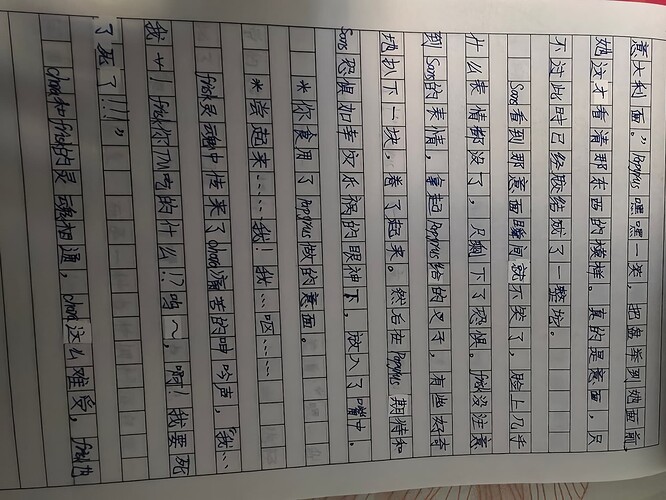 意大利面。”Papyrus嘿嘿一笑，把盘举到她面前，
她这才看清那东西的模样。真的是意面，只
不过此时已经胶结成了一整坨。
Sans看到那意面瞬间就不笑了，脸上几乎
什么表情都没了，只剩下了恐惧。frisk没注意
到Sans的表情，拿起Papyrus给的叉子，有些好奇
地扒下一块，卷了起来。然后在Papyrus期待和
Sans恐惧加幸灾乐祸的眼神下，放入了嘴中。
*你食用了Papyrus做的意面。
*尝起来……我！我…呕……
frisk灵魂中传来了chara痛苦的呻吟声，“我…
我艹！frisk你TM吃的什么！？呜～，啊！我要死
了死了！！！”
chara和frisk的灵魂相通，chara这么难受，frisk自